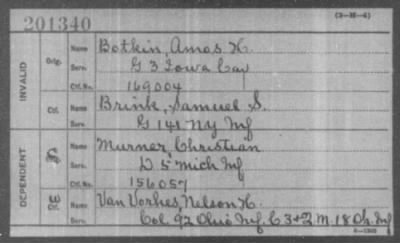 201340
(3-M-6)
INVALID
Orig.
Name Botkin, Amos H.
Serv. G 3 Iowa Cav
Ctf. No. 169004
Ctf.
Name Brink, Samuel S.
Serv. G 141 NY Inf
DEPENDENT
Name Murner, Christian
Serv. D 5" Mich Inf
Ctf. No. 156057
Ctf.
Name Van Vorhes, Nelson H.
Serv. Col. 92 Ohio Inf. C 3+2 M. 18 O. Inf